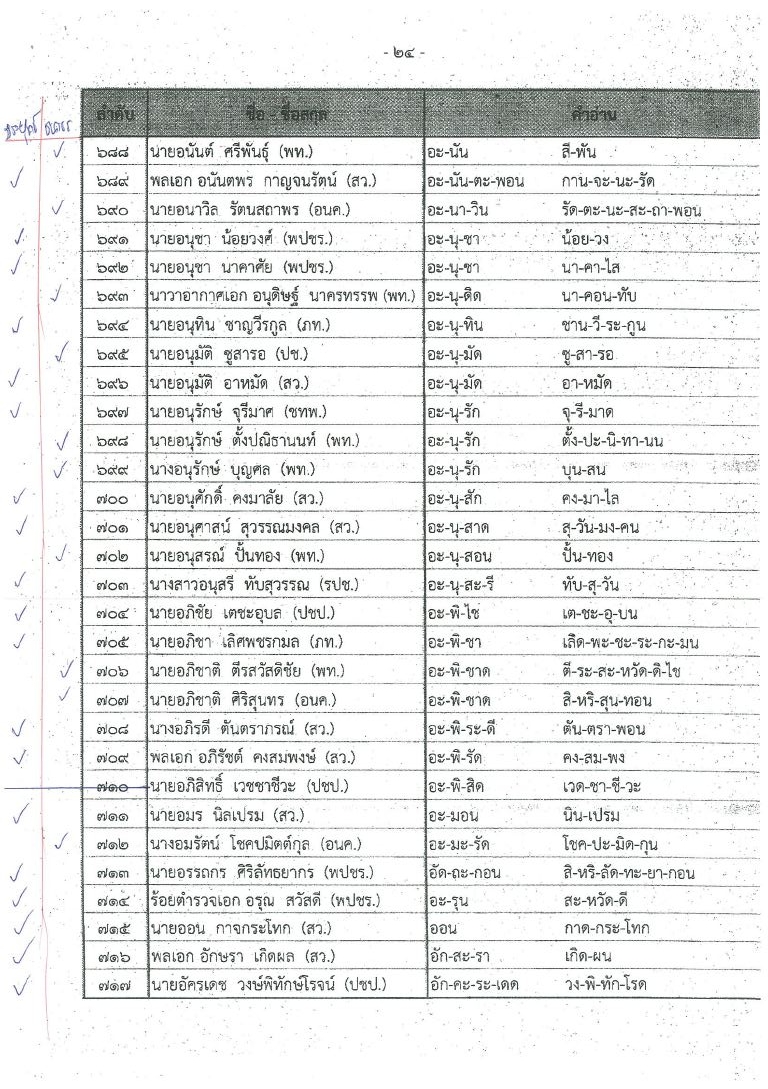 - ๒๔ -
ลำดับ ชื่อ - ชื่อสกุล คำอ่าน
๖๘๘ นายอนันต์ ศรีพันธุ์ (พท.) อะ-นัน สี-พัน
๖๘๙ พลเอก อนันตพร กาญจนรัตน์ (สว.) อะ-นัน-ตะ-พอน กาน-จะ-นะ-รัด
๖๙๐ นายอนาวิล รัตนสถาพร (อนค.) อะ-นา-วิน รัด-ตะ-นะ-สะ-ถา-พอน
๖๙๑ นายอนุชา น้อยวงศ์ (พปชร.) อะ-นุ-ชา น้อย-วง
๖๙๒ นายอนุชา นาคาศัย (พปชร.) อะ-นุ-ชา นา-คา-ไส
๖๙๓ นาวาอากาศเอก อนุดิษฐ์ นาครทรรพ (พท.) อะ-นุ-ดิด นา-คอน-ทับ
๖๙๔ นายอนุทิน ชาญวีรกูล (ภท.) อะ-นุ-ทิน ชาน-วี-ระ-กูน
๖๙๕ นายอนุมัติ ซูสารอ (ปช.) อะ-นุ-มัด ซู-สา-รอ
๖๙๖ นายอนุมัติ อาหมัด (สว.) อะ-นุ-มัด อา-หมัด
๖๙๗ นายอนุรักษ์ จุรีมาศ (ชทพ.) อะ-นุ-รัก จุ-รี-มาด
๖๙๘ นายอนุรักษ์ ตั้งปณิธานนท์ (พท.) อะ-นุ-รัก ตั้ง-ปะ-นิ-ทา-นน
๖๙๙ นางอนุรักษ์ บุญศล (พท.) อะ-นุ-รัก บุน-สน
๗๐๐ นายอนุศักดิ์ คงมาลัย (สว.) อะ-นุ-สัก คง-มา-ไล
๗๐๑ นายอนุศาสน์ สุวรรณมงคล (สว.) อะ-นุ-สาด สุ-วัน-มง-คน
๗๐๒ นายอนุสรณ์ ปั้นทอง (พท.) อะ-นุ-สอน ปั้น-ทอง
๗๐๓ นางสาวอนุสรี ทับสุวรรณ (รปช.) อะ-นุ-สะ-รี ทับ-สุ-วัน
๗๐๔ นายอภิชัย เตชะอุบล (ปชป.) อะ-พิ-ไช เต-ชะ-อุ-บน
๗๐๕ นายอภิชา เลิศพชรกมล (ภท.) อะ-พิ-ชา เลิด-พะ-ชะ-ระ-กะ-มน
๗๐๖ นายอภิชาติ ตีรสวัสดิชัย (พท.) อะ-พิ-ชาด ตี-ระ-สะ-หวัด-ดิ-ไช
๗๐๗ นายอภิชาติ ศิริสุนทร (อนค.) อะ-พิ-ชาด สิ-หริ-สุน-ทอน
๗๐๘ นางอภิรดี ตันตราภรณ์ (สว.) อะ-พิ-ระ-ดี ตัน-ตรา-พอน
๗๐๙ พลเอก อภิรัชต์ คงสมพงษ์ (สว.) อะ-พิ-รัด คง-สม-พง
๗๑๐ นายอภิสิทธิ์ เวชชาชีวะ (ปชป.) อะ-พิ-สิด เวด-ชา-ชี-วะ
๗๑๑ นายอมร นิลเปรม (สว.) อะ-มอน นิน-เปรม
๗๑๒ นางอมรัตน์ โชคปมิตต์กุล (อนค.) อะ-มะ-รัด โชค-ปะ-มิด-กุน
๗๑๓ นายอรรถกร ศิริลัทธยากร (พปชร.) อัด-ถะ-กอน สิ-หริ-ลัด-ทะ-ยา-กอน
๗๑๔ ร้อยตำรวจเอก อรุณ สวัสดี (พปชร.) อะ-รุน สะ-หวัด-ดี
๗๑๕ นายออน กาจกระโทก (สว.) ออน กาด-กระ-โทก
๗๑๖ พลเอก อักษรา เกิดผล (สว.) อัก-สะ-รา เกิด-ผน
๗๑๗ นายอัครเดช วงษ์พิทักษ์โรจน์ (ปชป.) อัก-คะ-ระ-เดด วง-พิ-ทัก-โรด